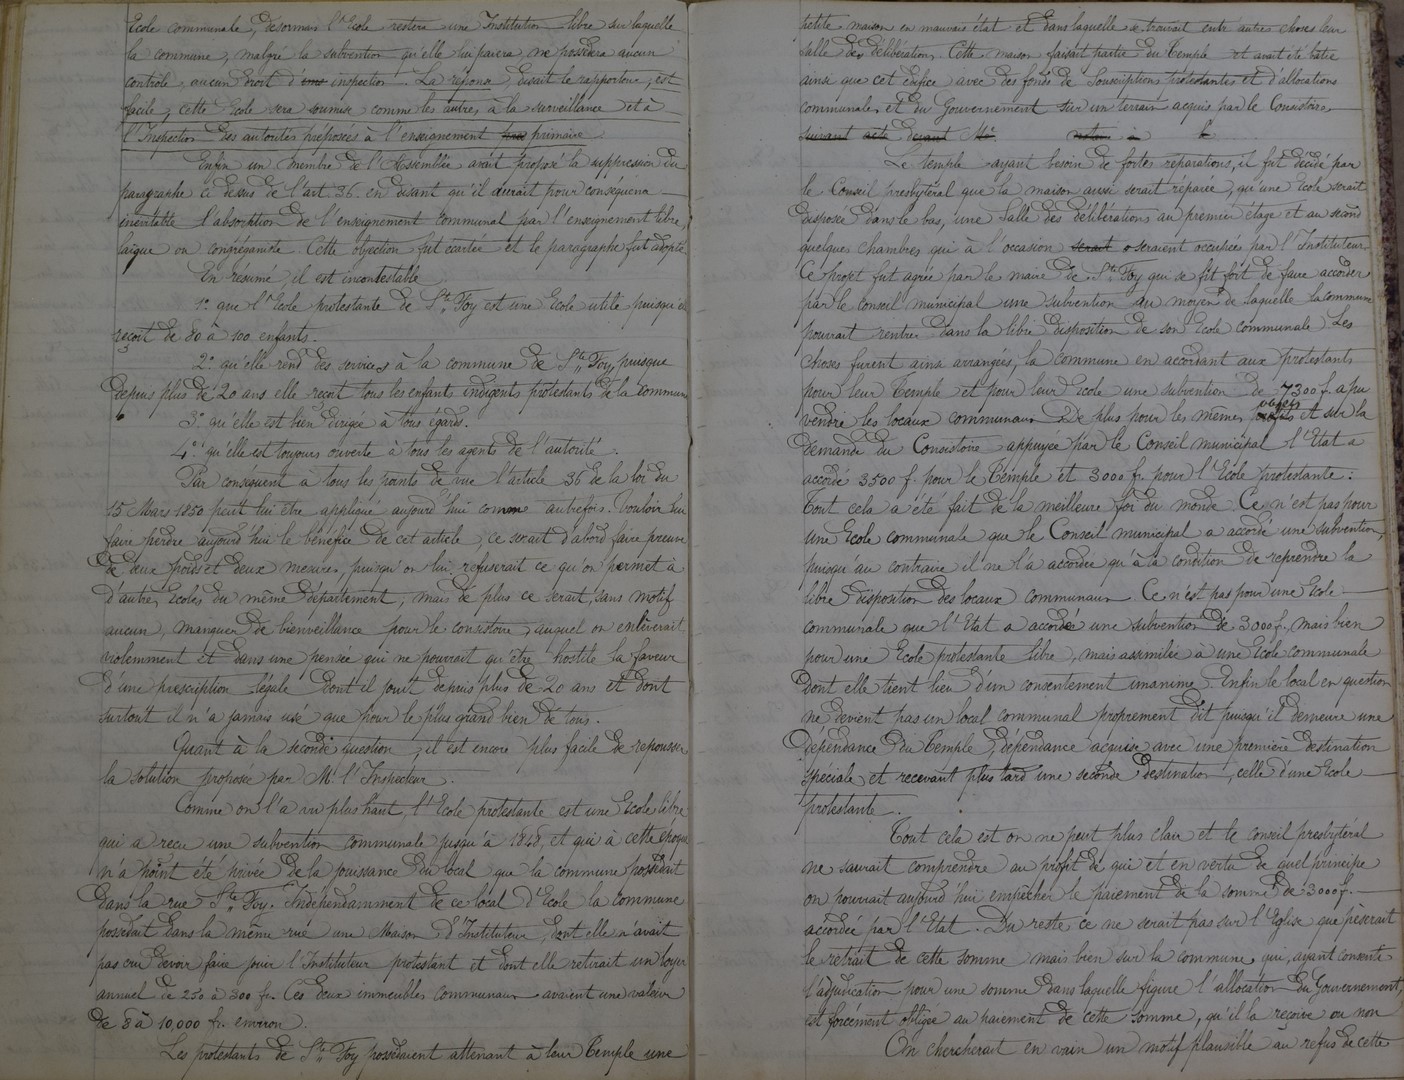 Ecole communale, désormais l'Ecole restera une Institution libre sur laquelle
la commune, malgré la subvention qu'elle lui paiera ne possédera aucun
contrôle, aucun droit d'une inspection. La réponse, disait le rapporteur, est
facile, cette Ecole sera soumise comme les autres, à la surveillance et à
l'Inspection des autorités préposées à l'enseignement primaire.
Enfin un membre de l'Assemblée avait proposé la suppression du
paragraphe ci dessus de l'art. 36. en disant qu'il aurait pour conséquence
inévitable l'absorption de l'enseignement communal par l'enseignement libre,
laïque ou congréganiste. Cette objection fut écartée et le paragraphe fut adopté.
En résumé, il est incontestable
1° que l'Ecole protestante de Ste Foy est une Ecole utile puisqu'elle
reçoit de 80 à 100 enfants.
2° qu'elle rend des services à la commune de Ste Foy, puisque
depuis plus de 20 ans elle reçoit tous les enfants indigents protestants de la commune
3° qu'elle est bien dirigée à tous égards.
4° qu'elle est toujours ouverte à tous les agents de l'autorité.
Par conséquent à tous les points de vue l'article 36 de la loi du
15 Mars 1850 peut lui être appliqué aujourd'hui comme autrefois. Vouloir lui
faire perdre aujourd'hui le bénéfice de cet article, ce serait d'abord faire preuve
de deux poids et deux mesures, puisqu'on lui refuserait ce qu'on permet à
d'autres Ecoles du même département, mais de plus ce serait, sans motif
aucun, manquer de bienveillance pour le consistoire, auquel on enlèverait
violemment et dans une pensée qui ne pourrait qu'être hostile la faveur
d'une prescription légale dont il jouit depuis plus de 20 ans et dont
surtout il n'a jamais usé que pour le plus grand bien de tous.
Quant à la seconde question, il est encore plus facile de repousser
la solution proposée par Mr l'Inspecteur.
Comme on l'a vu plus haut, l'Ecole protestante est une Ecole libre
qui a reçu une subvention communale jusqu'à 1848, et qui à cette époque
n'a point été privée de la jouissance du local que la commune possédait
dans la rue Ste Foy. Indépendamment de ce local d'Ecole la commune
possédait dans la même rue une Maison d'Instituteur, dont elle n'avait
pas cru devoir faire jouir l'Instituteur protestant et dont elle retirait un loyer
annuel de 250 à 300 fr. Ces deux immeubles communaux avaient une valeur
de 8 à 10,000 fr. environ.
Les protestants de Ste Foy possédaient attenant à leur Temple une
petite maison en mauvais état et dans laquelle se trouvait entre autres choses leur
Salle des délibérations. Cette maison faisait partie du Temple et avait été bâtie
ainsi que cet édifice avec des fonds de Souscriptions protestantes et d'allocations
communales et du Gouvernement sur un terrain acquis par le Consistoire
suivant acte devant Me notaire à le
Le Temple ayant besoin de fortes réparations, il fut décidé par
le Conseil presbytéral que la maison aussi serait réparée, qu'une Ecole serait
disposée dans le bas, une Salle des délibérations au premier étage et au second
quelques chambres qui à l'occasion serait seraient occupées par l'Instituteur.
Ce projet fut agréé par le maire de Ste Foy qui se fit fort de faire accorder
par le conseil municipal une subvention au moyen de laquelle la commune
pourrait rentrer dans la libre disposition de son Ecole communale. Les
choses furent ainsi arrangées, la commune en accordant aux protestants
pour leur Temple et pour leur Ecole une subvention de 7300 f. a pu
vendre les locaux communaux. De plus pour les mêmes objets et sur la
demande du Consistoire appuyée par le Conseil municipal l'Etat a
accordé 3500 f. pour le Temple et 3000 fr. pour l'Ecole protestante:
Tout cela a été fait de la meilleure foi du monde. Ce n'est pas pour
une Ecole communale que le Conseil municipal a accordé une subvention,
puisqu'au contraire il ne l'a accordée qu'à la condition de reprendre la
libre disposition des locaux communaux. Ce n'est pas pour une Ecole
communale que l'Etat a accordé une subvention de 3000 f., mais bien
pour une Ecole protestante libre, mais assimilée à une Ecole communale
dont elle tient lieu d'un consentement unanime. Enfin le local en question
ne devient pas un local communal proprement dit puisqu'il demeure une
dépendance du Temple, dépendance acquise avec une première destination
spéciale et recevant plus tard une seconde destination, celle d'une Ecole
protestante.
Tout cela est on ne peut plus clair et le conseil presbytéral
ne saurait comprendre au profit de qui et en vertu de quel principe
on pourrait aujourd'hui empêcher le paiement de la somme de 3000 f.
accordée par l'Etat. Du reste ce ne serait pas sur l'Eglise que pèserait
le retrait de cette somme mais bien sur la commune, qui, ayant consenti
l'adjudication pour une somme dans laquelle figure l'allocation du Gouvernement,
est forcément obligée au paiement de cette somme, qu'il la reçoive ou non
On chercherait en vain un motif plausible au refus de cette